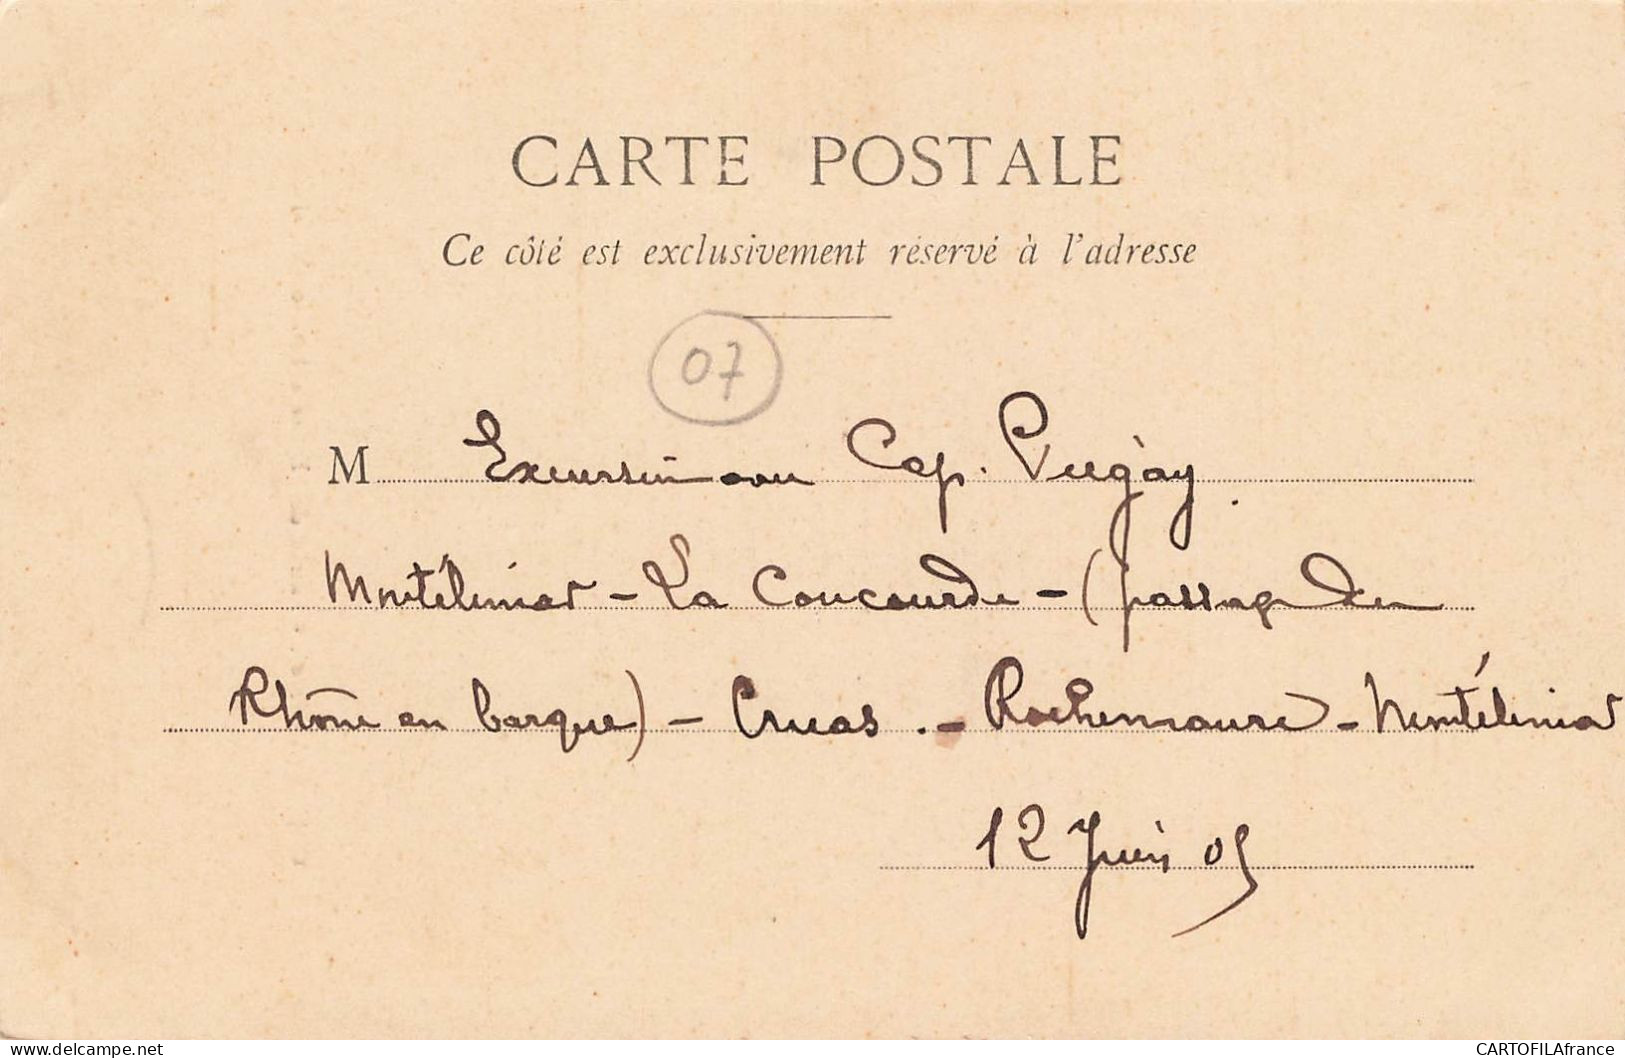 CARTE POSTALE
Ce côté est exclusivement réservé à l'adresse
07
M Excursion avec Cap.
Montélimar - La Coucourde - (passage du
Rhône en barque) - Cruas. - Rochemaure - Montélimar
12 Juin 05
delcampe.net
CARTOFILAfrance